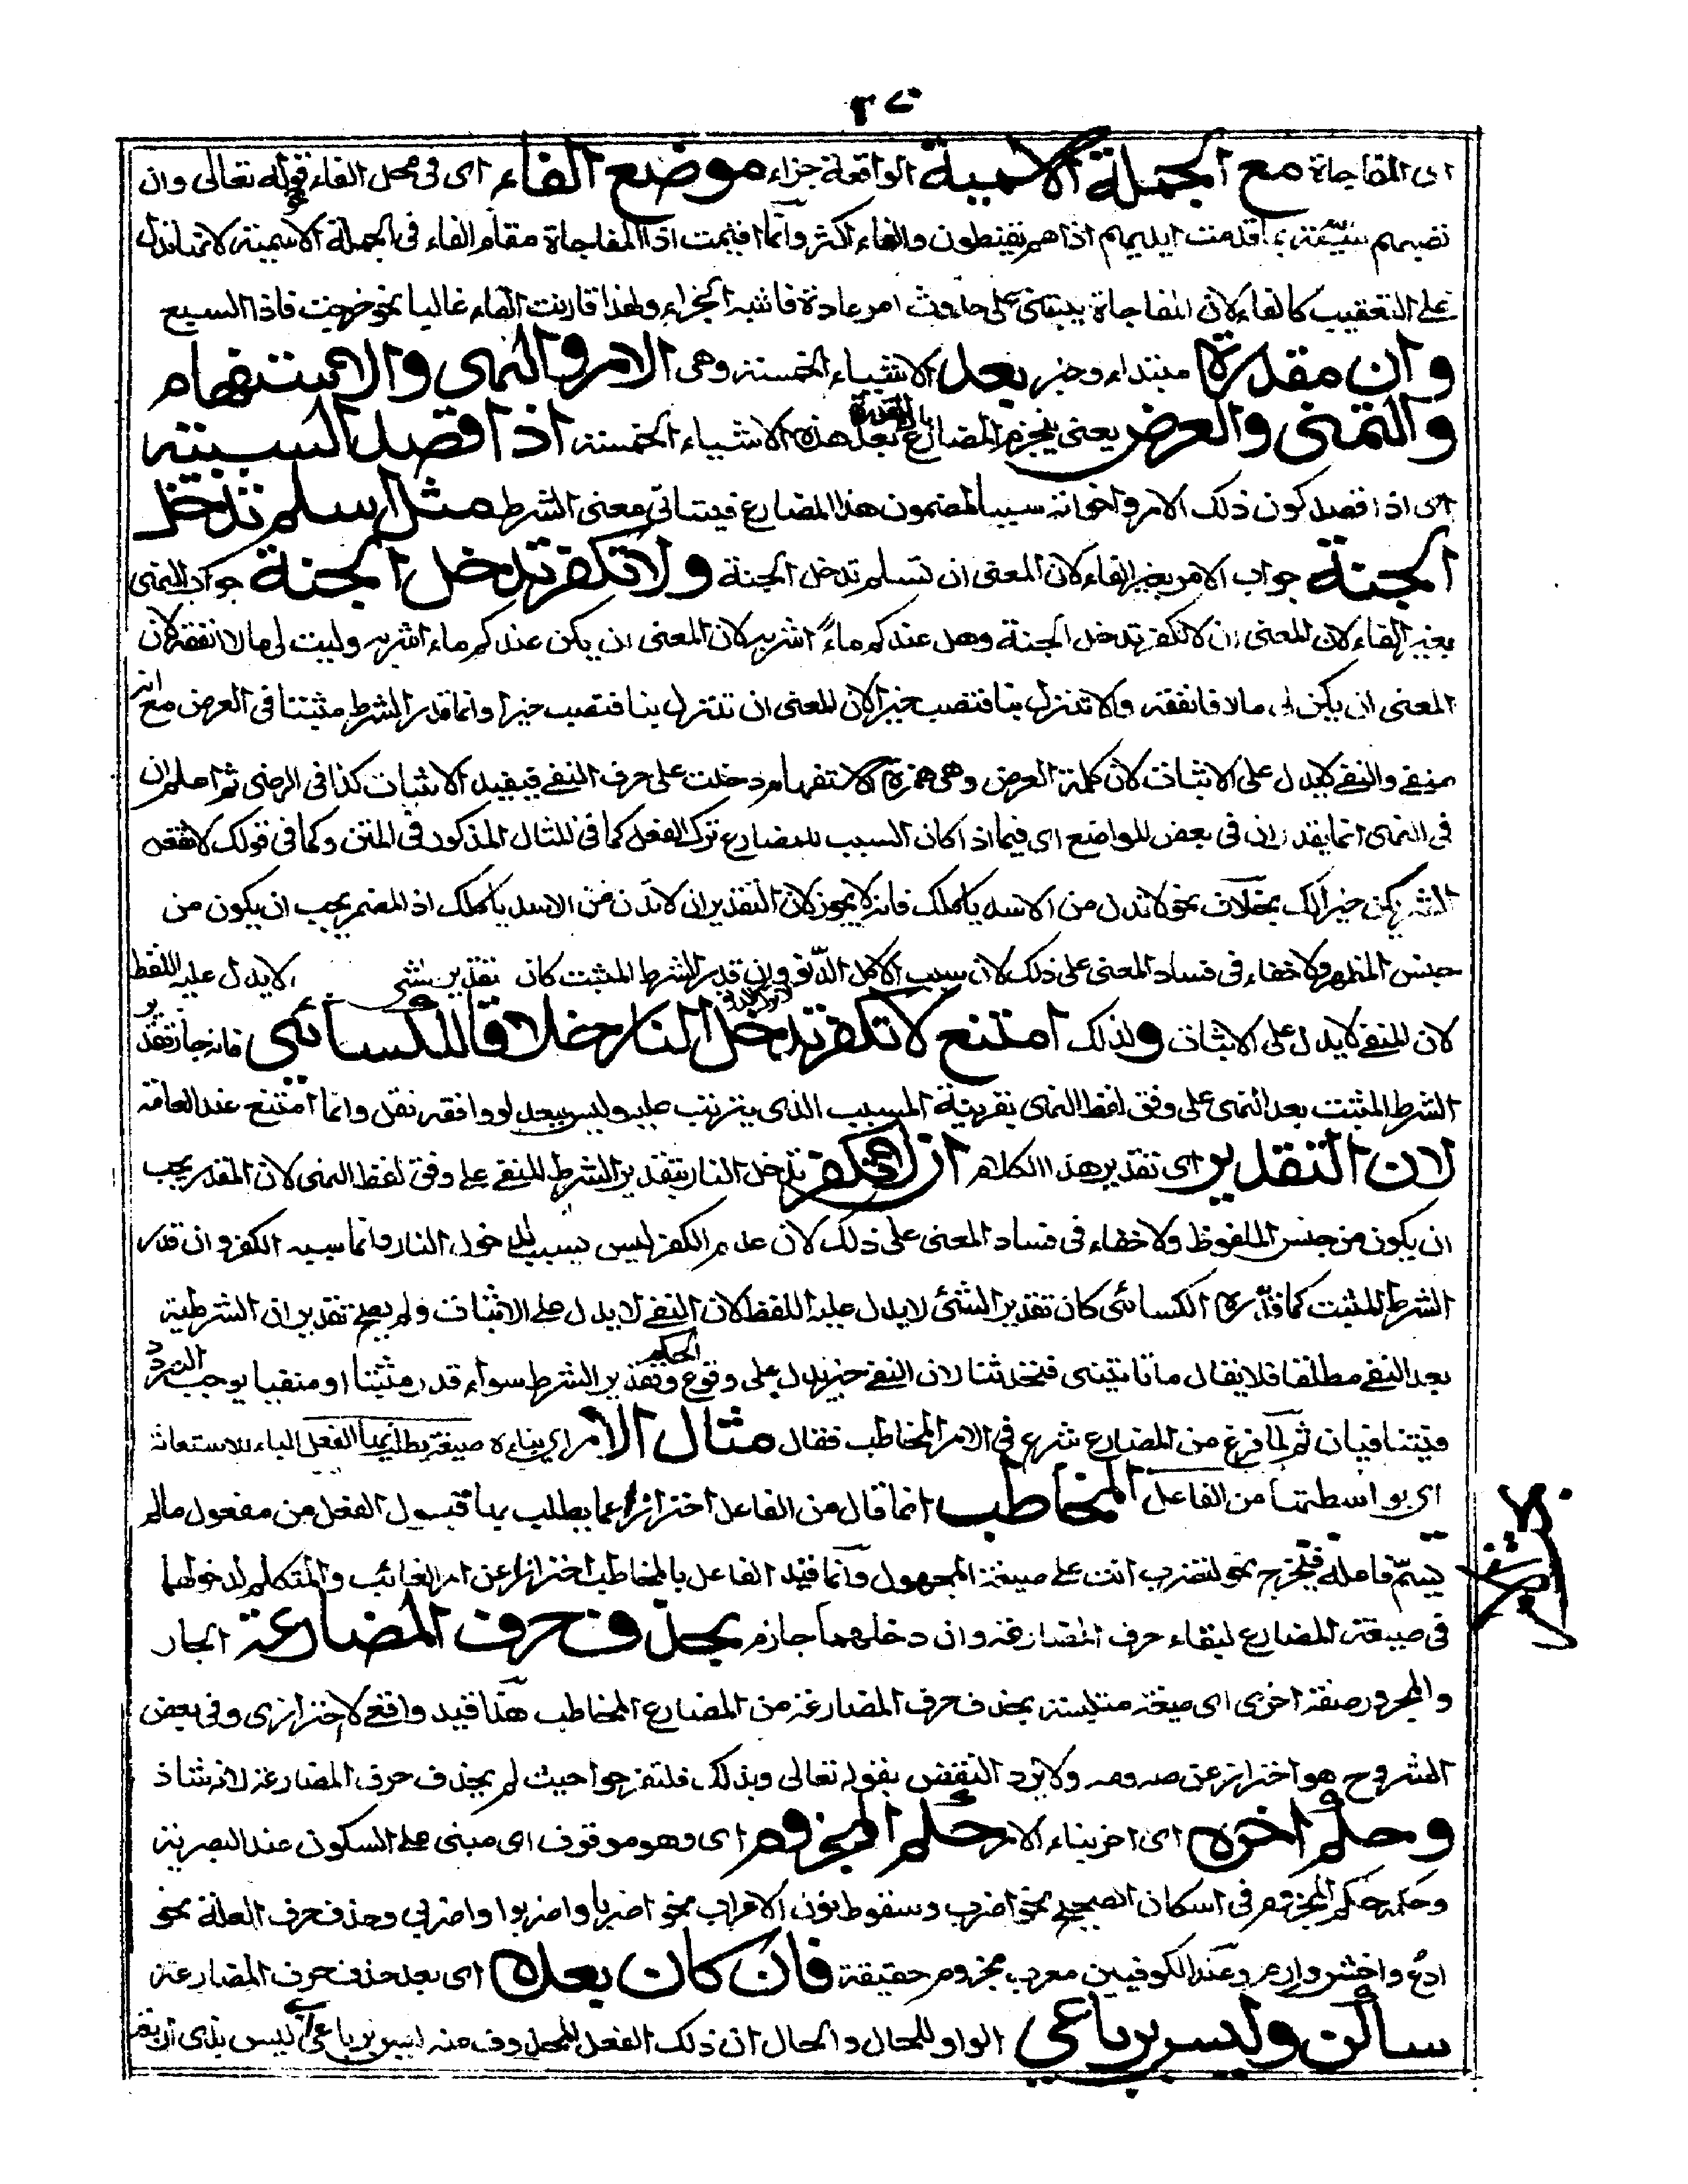 اى المفاجاة مع الجملة الاسمية الواقعة جزاء موضع الفاء اى فى محل الفاء نحو قوله تعالى وان
تصبهم سيئة بما قدمت ايديهم اذا هم يقنطون والفاء اكثر وانما اقيمت اذا المفاجاة مقام الفاء فى الجملة الاسمية لانها تدل
على التعقيب كالفاء لان المفاجاة يبتنى على حدوث امر عادة فاشبه الجزاء ولهذا قارنت الفاء غالبا نحو خرجت فاذا السبع
وان مقدرة مبتداء وخبر بعد الاشياء الخمسة وهى الامر والنهى والاستفهام
والتمنى والعرض يعنى ينجزم المضارع بان المقدرة بعد هذه الاشياء الخمسة اذا قصد السببية
اى اذا قصد كون ذلك الامر واخواته سببا لمضمون هذا المضارع فيتاتى معنى الشرط مثل اسلم تدخل
الجنة جواب الامر بغير الفاء لان المعنى ان تسلم تدخل الجنة ولا تكفر تدخل الجنة جواب النهى
بغير الفاء لان المعنى ان لا تكفر تدخل الجنة وهل عندكم ماء اشربه لان المعنى ان يكن عندكم ماء اشربه وليت لى مالا انفقه لان
المعنى ان يكن لى مالا فانفقه والا تنزل بنا فتصب خيرا لان المعنى ان تنزل بنا فتصب خيرا وانما قدر الشرط مثبتا فى العرض مع انه
منفى والنفى لا يدل على الاثبات لان كلمة العرض وهى همزة الاستفهام دخلت على حرف النفى فيفيد الاثبات كذا فى الرضى ثم اعلم ان
فى النهى انما يقدر ان فى بعض المواضع اى فيما اذا كان السبب للمضارع ترك الفعل كما فى المثال المذكور فى المتن وكما فى قولك لا تفعل
الشر يكن خيرا لك بخلاف نحو لا تدن من الاسد ياكلك فانه لا يجوز لان التقدير ان لا تدن من الاسد ياكلك اذ المضمر يجب ان يكون من
جنس المظهر ولا خفاء فى فساد المعنى على ذلك لان سبب الاكل الدنو وان قدر الشرط المثبت كان تقدير شئ لا يدل عليه اللفظ
لان المنفى لا يدل على الاثبات ولذلك امتنع لا تكفر تدخل النار خلافا للكسائى فانه جاز تقدير
الشرط المثبت بعد النهى على وفق لفظ النهى بقرينة المسبب الذى يترتب عليه وليس ببعد لو وافقه نقل وانما امتنع عند العامة
لان التقدير اى تقدير هذا الكلام ان لا تكفر تدخل النار بتقدير الشرط المنفى على وفق لفظ النهى لان المقدر يجب
ان يكون من جنس الملفوظ ولا خفاء فى فساد المعنى على ذلك لان عدم الكفر ليس بسبب لدخول النار وانما سببه الكفر وان قدر
الشرط المثبت كما قدره الكسائى كان تقدير الشئ لا يدل عليه اللفظ لان النفى لا يدل على الاثبات ولم يصح تقدير ان الشرطية
بعد النفى مطلقا فلا يقال ما تاتينى فتحدثنا لان النفى خبر يدل على وقوع الحكم وتقدير الشرط سواء قدر مثبتا او منفيا يوجب التردد
فيتنافيان ثم لما فرغ من المضارع شرع فى الامر المخاطب فقال مثال الامر اى بناءه صيغة يطلب بها الفعل الباء للاستعانة
اى بواسطتها من الفاعل المخاطب انما قال من الفاعل احترازا عما يطلب بها قبول الفعل من مفعول مالم
يسم فاعله فيخرج نحو لتضرب انت على صيغة المجهول وانما قيد الفاعل بالمخاطب احترازا عن امر الغائب والمتكلم لدخولهما
فى صيغة المضارع لبقاء حرف المضارعة وان دخلهما جازم بحذف حرف المضارعة الجار
والمجرور صفة اخرى اى صيغة متلبسة بحذف حرف المضارعة من المضارع المخاطب هذا قيد واقعى لا احترازى وفى بعض
الشروح هو احتراز عن صه ومه ولا يرد النقض بقوله تعالى وبذلك فلتفرحوا حيث لم يحذف حرف المضارعة لانه شاذ
وحكم آخره اى اخر بناء الامر حكم المجزوم اى وهو موقوف اى مبنى على السكون عند البصرية
وحكمه حكم المجزوم فى اسكان الصحيح نحو اضرب وسقوط نون الاعراب نحو اضربا واضربوا واضربى وحذف حرف العلة نحو
ادع واخش وارم وعند الكوفيين معرب مجزوم حقيقة فان كان بعده اى بعد حذف حرف المضارعة
ساكن وليس برباعى الواو للحال والحال ان ذلك الفعل المحذوف منه ليس برباعى اى ليس بذى اربعة